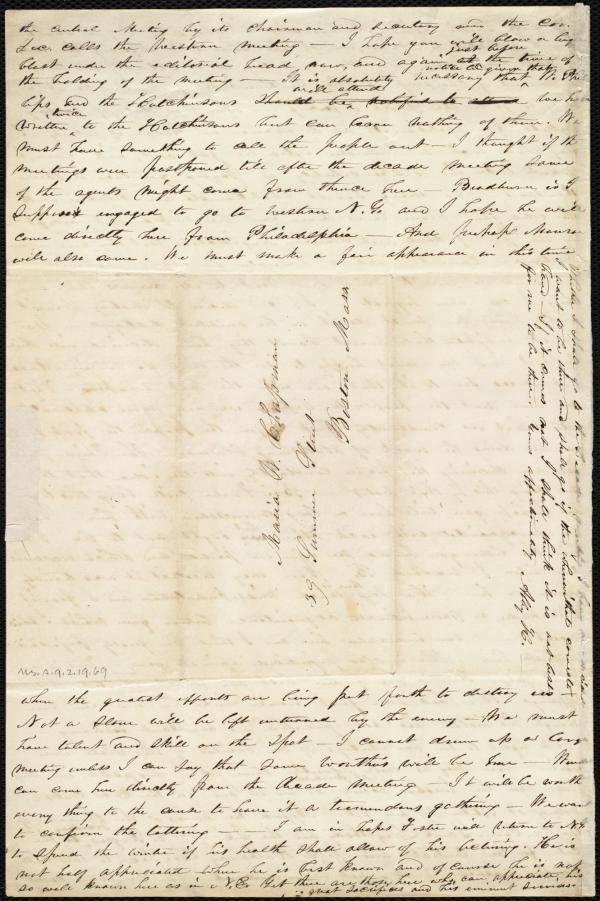 the central Meeting by its chairman and secretary and the Cor.
Sec. calls the Western meeting — I hope you will blow a big
blast under the editorial head, now, and again just before the time of
the holding of the meeting — It is absolutely necessary that
and the Hutchinsons will attend we have
written twice to the Hutchinsons but can learn nothing of them. We
must have something to call the people out — I thought if the
meetings were postponed till after the decade meeting some
of the agents might come from thence here — Bradburn is I
suppose engaged to go to western N.Y. and I hope he will
come directly here from Philadelphia — And perhaps Monroe
will also come. We must make a fair appearance in this time
when the greatest efforts are being put forth to destroy us
Not a stone will be left unturned by the enemy — We must
have talent and skill on the spot — I cannot drum up a large
meeting unless I can say that some worthies will be here —
can come here directly from the decade meeting — It will be worth
every thing to the cause to have it a tremendous gathering — We want
to confirm the tottering — — I am in hopes Foster will return to N.H.
to spend the winter if his health shall allow of his lecturing. He is
not half appreciated where he is best known and of course he is not
so well known here as in N.E. Yet there are those here who can appreciate his
great sacrifices and his eminent services.
Maria W. Chapman
39 Summer Street
Boston Mass
whether I shall go to the decade
I want to be there and shall go if the wherewithal comes to
hand — If it comes not I shall think it is not best
for me to be there. Yours affectionately Abby K.
Ms.A.9.2.19.69